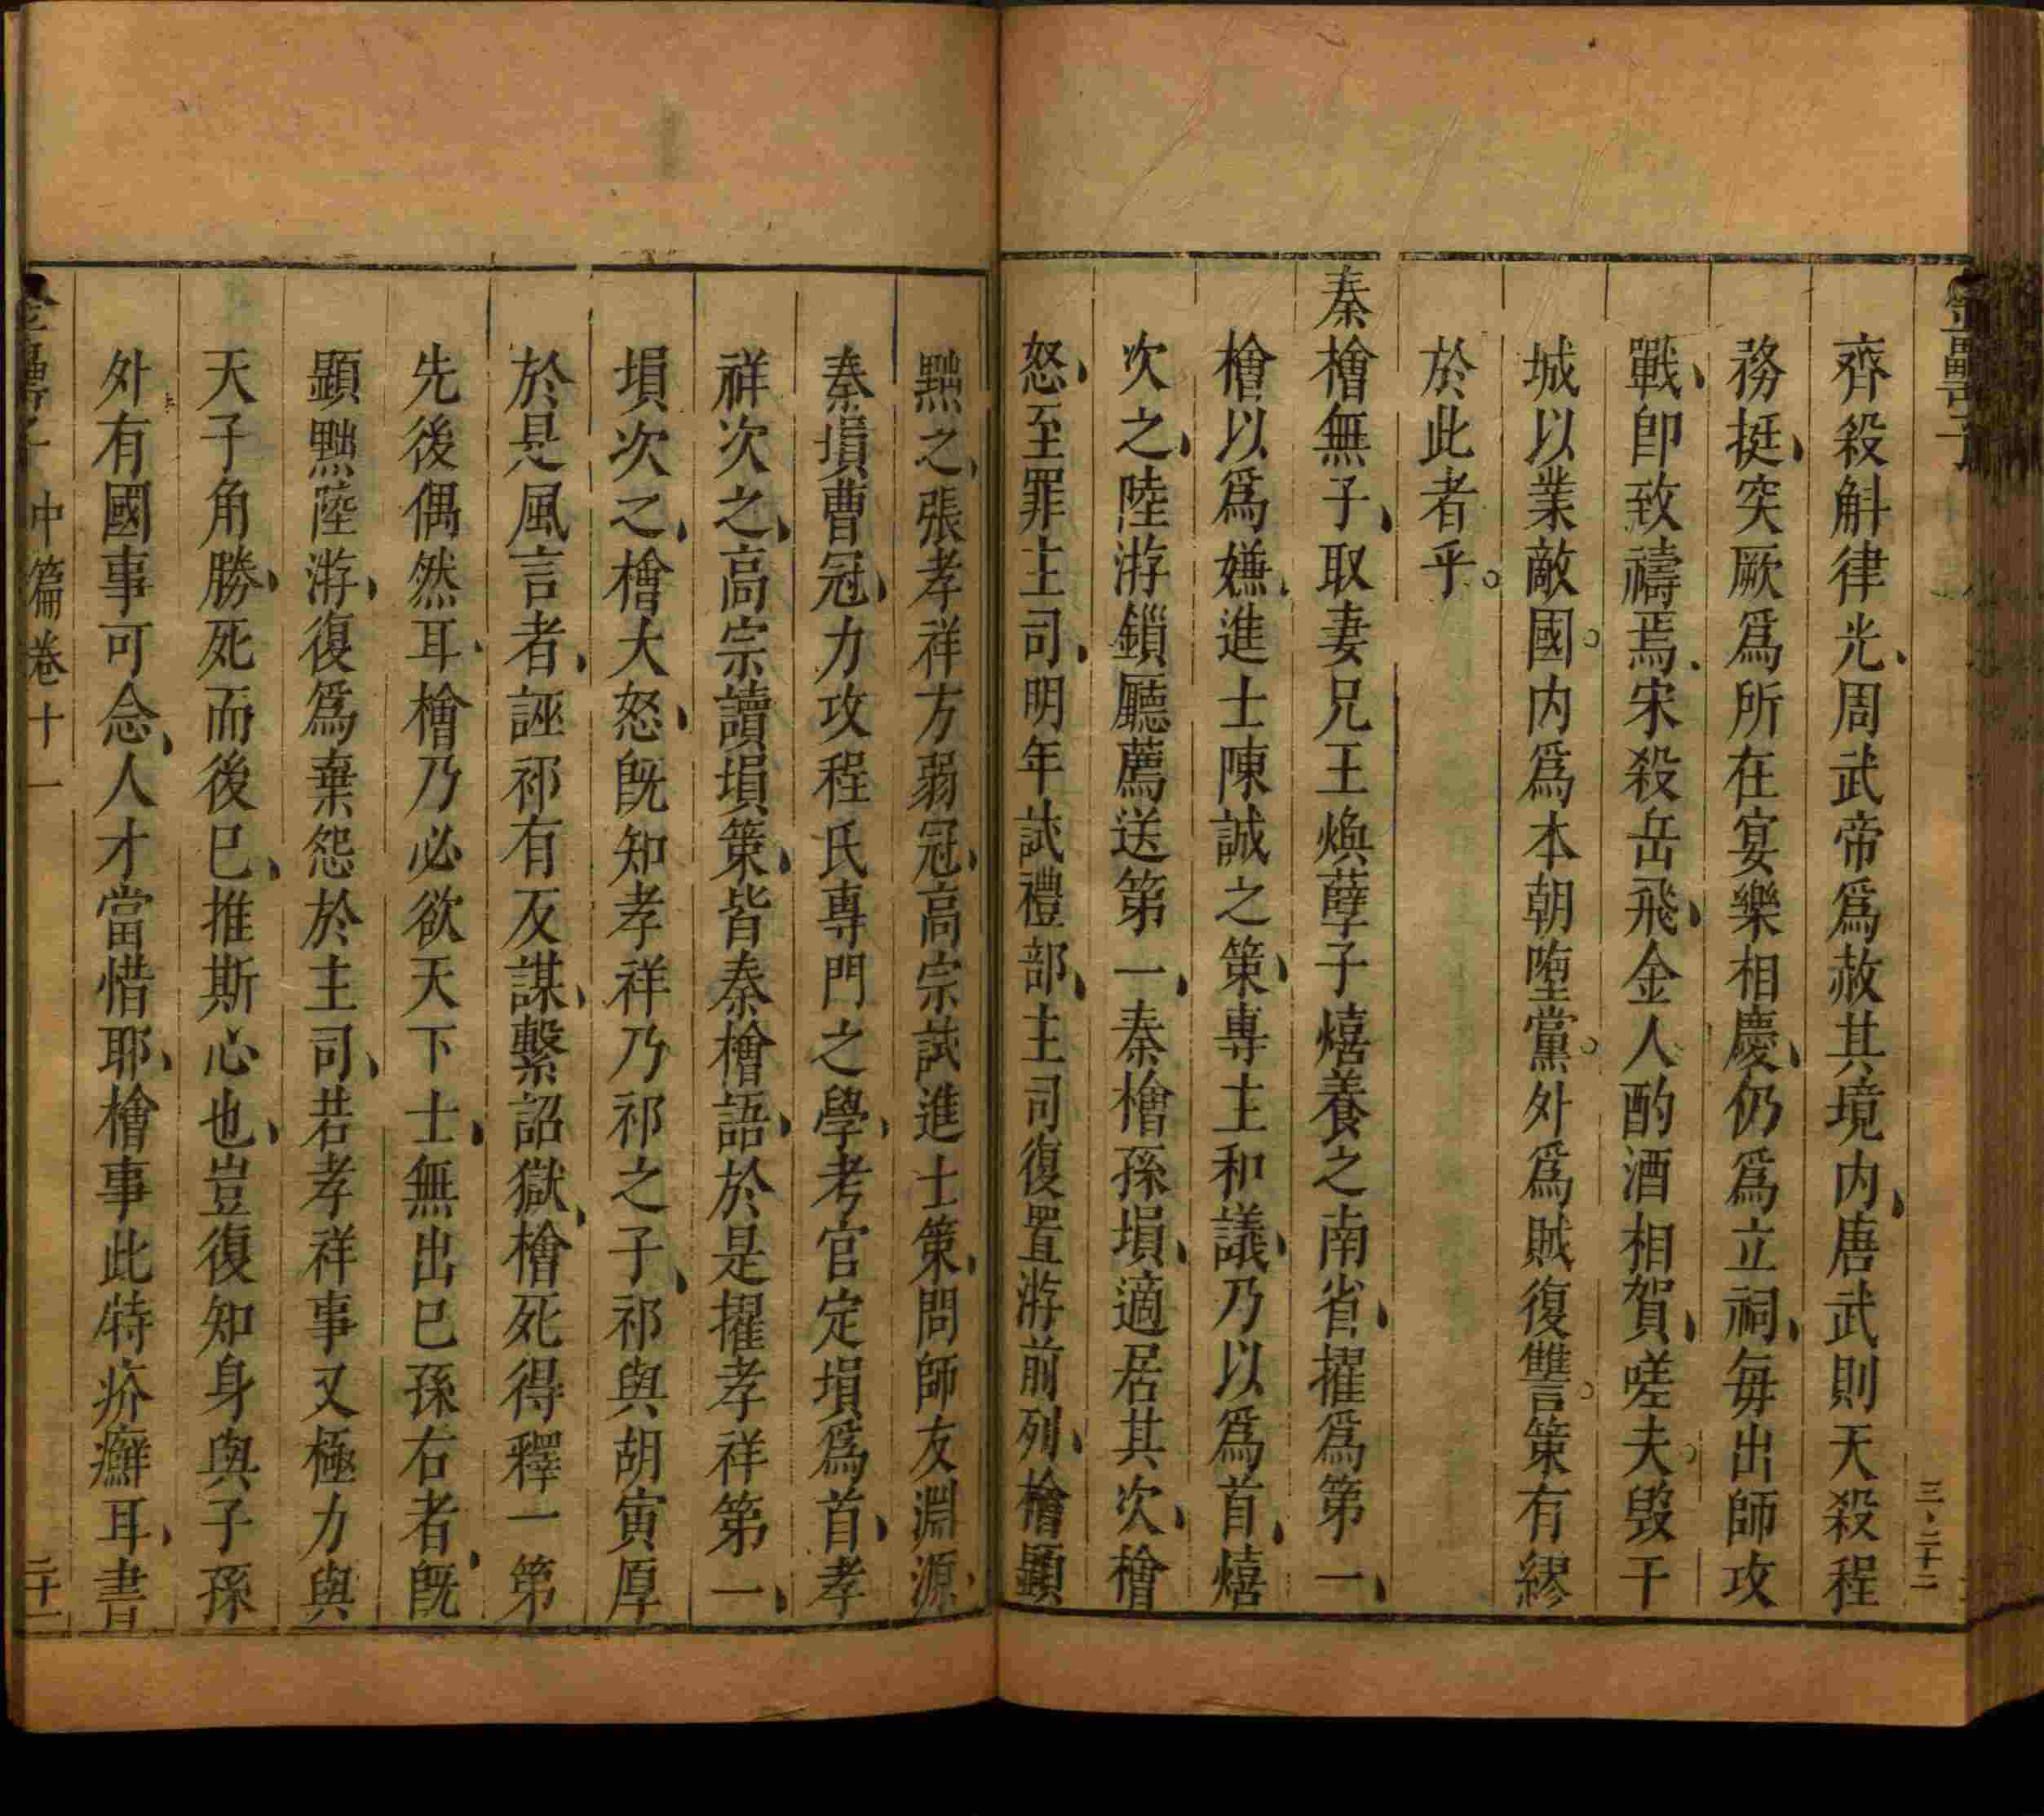 金罍子
三、二十二
齊殺斛律光、周武帝爲赦其境内、唐武則天殺程
務挺、突厥爲所在宴樂相慶、仍爲立祠、每出師攻
戰、卽致禱焉、宋殺岳飛、金人酌酒相賀、嗟夫。毁干
城以業敵國。内爲本朝墮黨。外爲賊復讐。策有繆
於此者乎。
秦檜無子、取妻兄王煥孽子熺養之南省、擢爲第一、
檜以爲嫌、進士陳誠之策、專主和議、乃以爲首、熺
次之、陸游鎖廳薦送第一、秦檜孫塤、適居其次、檜
怒、至罪主司、明年試禮部、主司復置游前列、檜顯
黜之、張孝祥方弱冠、高宗試進士策、問師友淵源、
秦塤曹冠、力攻程氏專門之學、考官定塤爲首、孝
祥次之、高宗讀塤策、皆秦檜語、於是擢孝祥第一、
塤次之、檜大怒、旣知孝祥乃祁之子、祁與胡寅厚
於是風言者、誣祁有反謀、繫詔獄、檜死得釋一第
先後偶然耳、檜乃必欲天下士、無出已孫右者、旣
顯黜陸游、復爲棄怨於主司、若孝祥事又極力與
天子角勝、死而後巳、推斯心也、豈復知身與子孫
外有國事可念、人才當惜耶、檜事此特疥癬耳、書
金罍子 中篇卷十一 二十一